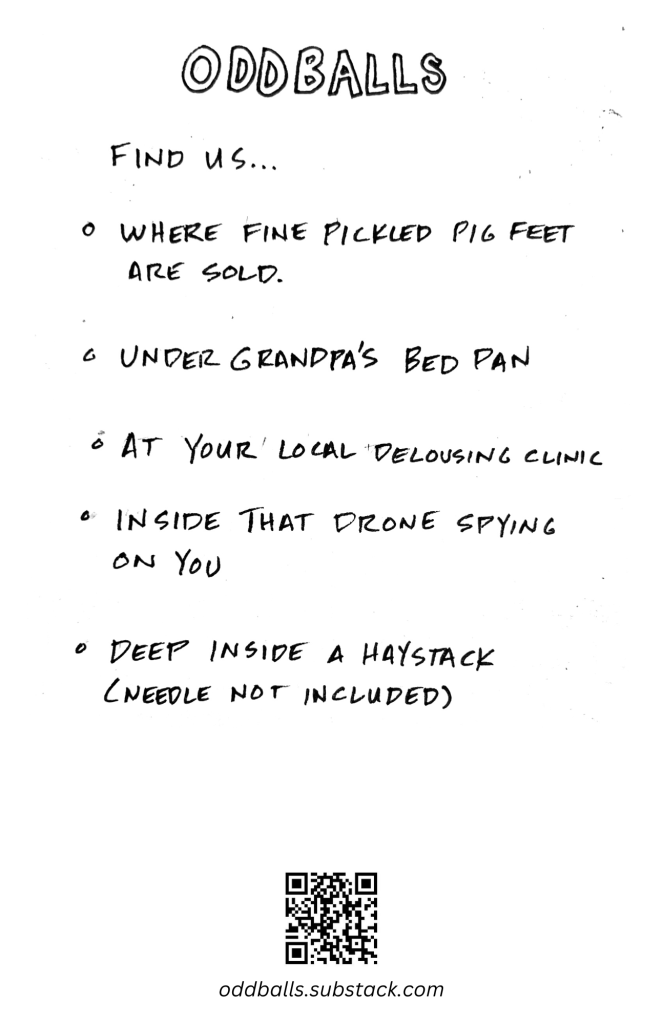 ODDBALLS
FIND US...
o WHERE FINE PICKLED PIG FEET
ARE SOLD.
o UNDER GRANDPA'S BED PAN
o AT YOUR LOCAL DELOUSING CLINIC
o INSIDE THAT DRONE SPYING
ON YOU
o DEEP INSIDE A HAYSTACK
(NEEDLE NOT INCLUDED)
oddballs.substack.com